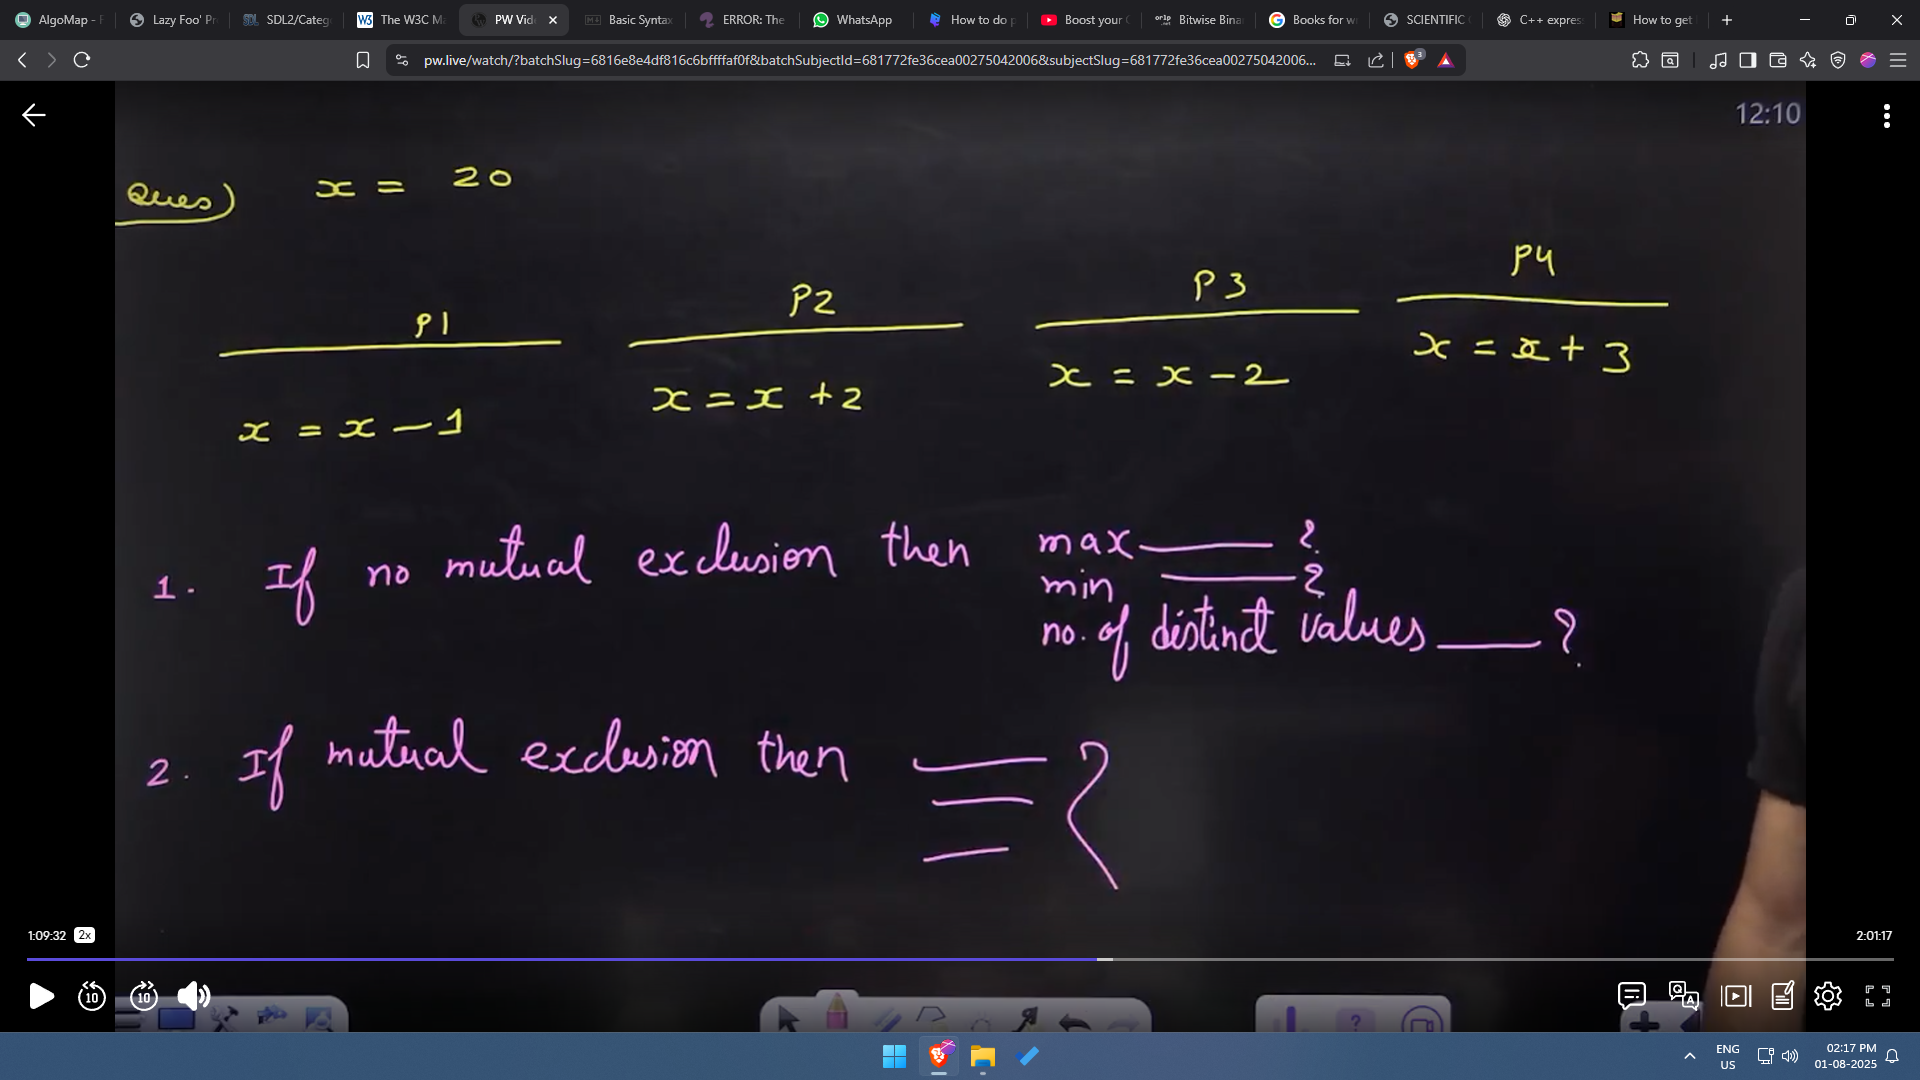 AlgoMap - F
Lazy Foo' Pr
SDL2/Categ
The W3C Ma
PW Vid
Basic Syntax
ERROR: The
WhatsApp
How to do p
Boost your
Bitwise Bina
Books for w
SCIENTIFIC
C++ expres
How to get
pw.live/watch/?batchSlug=6816e8e4df816c6bffffaf0f&batchSubjectId=681772fe36cea00275042006&subjectSlug=681772fe36cea00275042006...
3
12:10
Ques) x = 20
P1 P2 P3 P4
x = x - 1 x = x + 2 x = x - 2 x = x + 3
1. If no mutual exclusion then max ____ ?
min ____ ?
no. of distinct values ____ ?
2. If mutual exclusion then ____ ?
1:09:32 2x 2:01:17
10 10
ENG
US
02:17 PM
01-08-2025